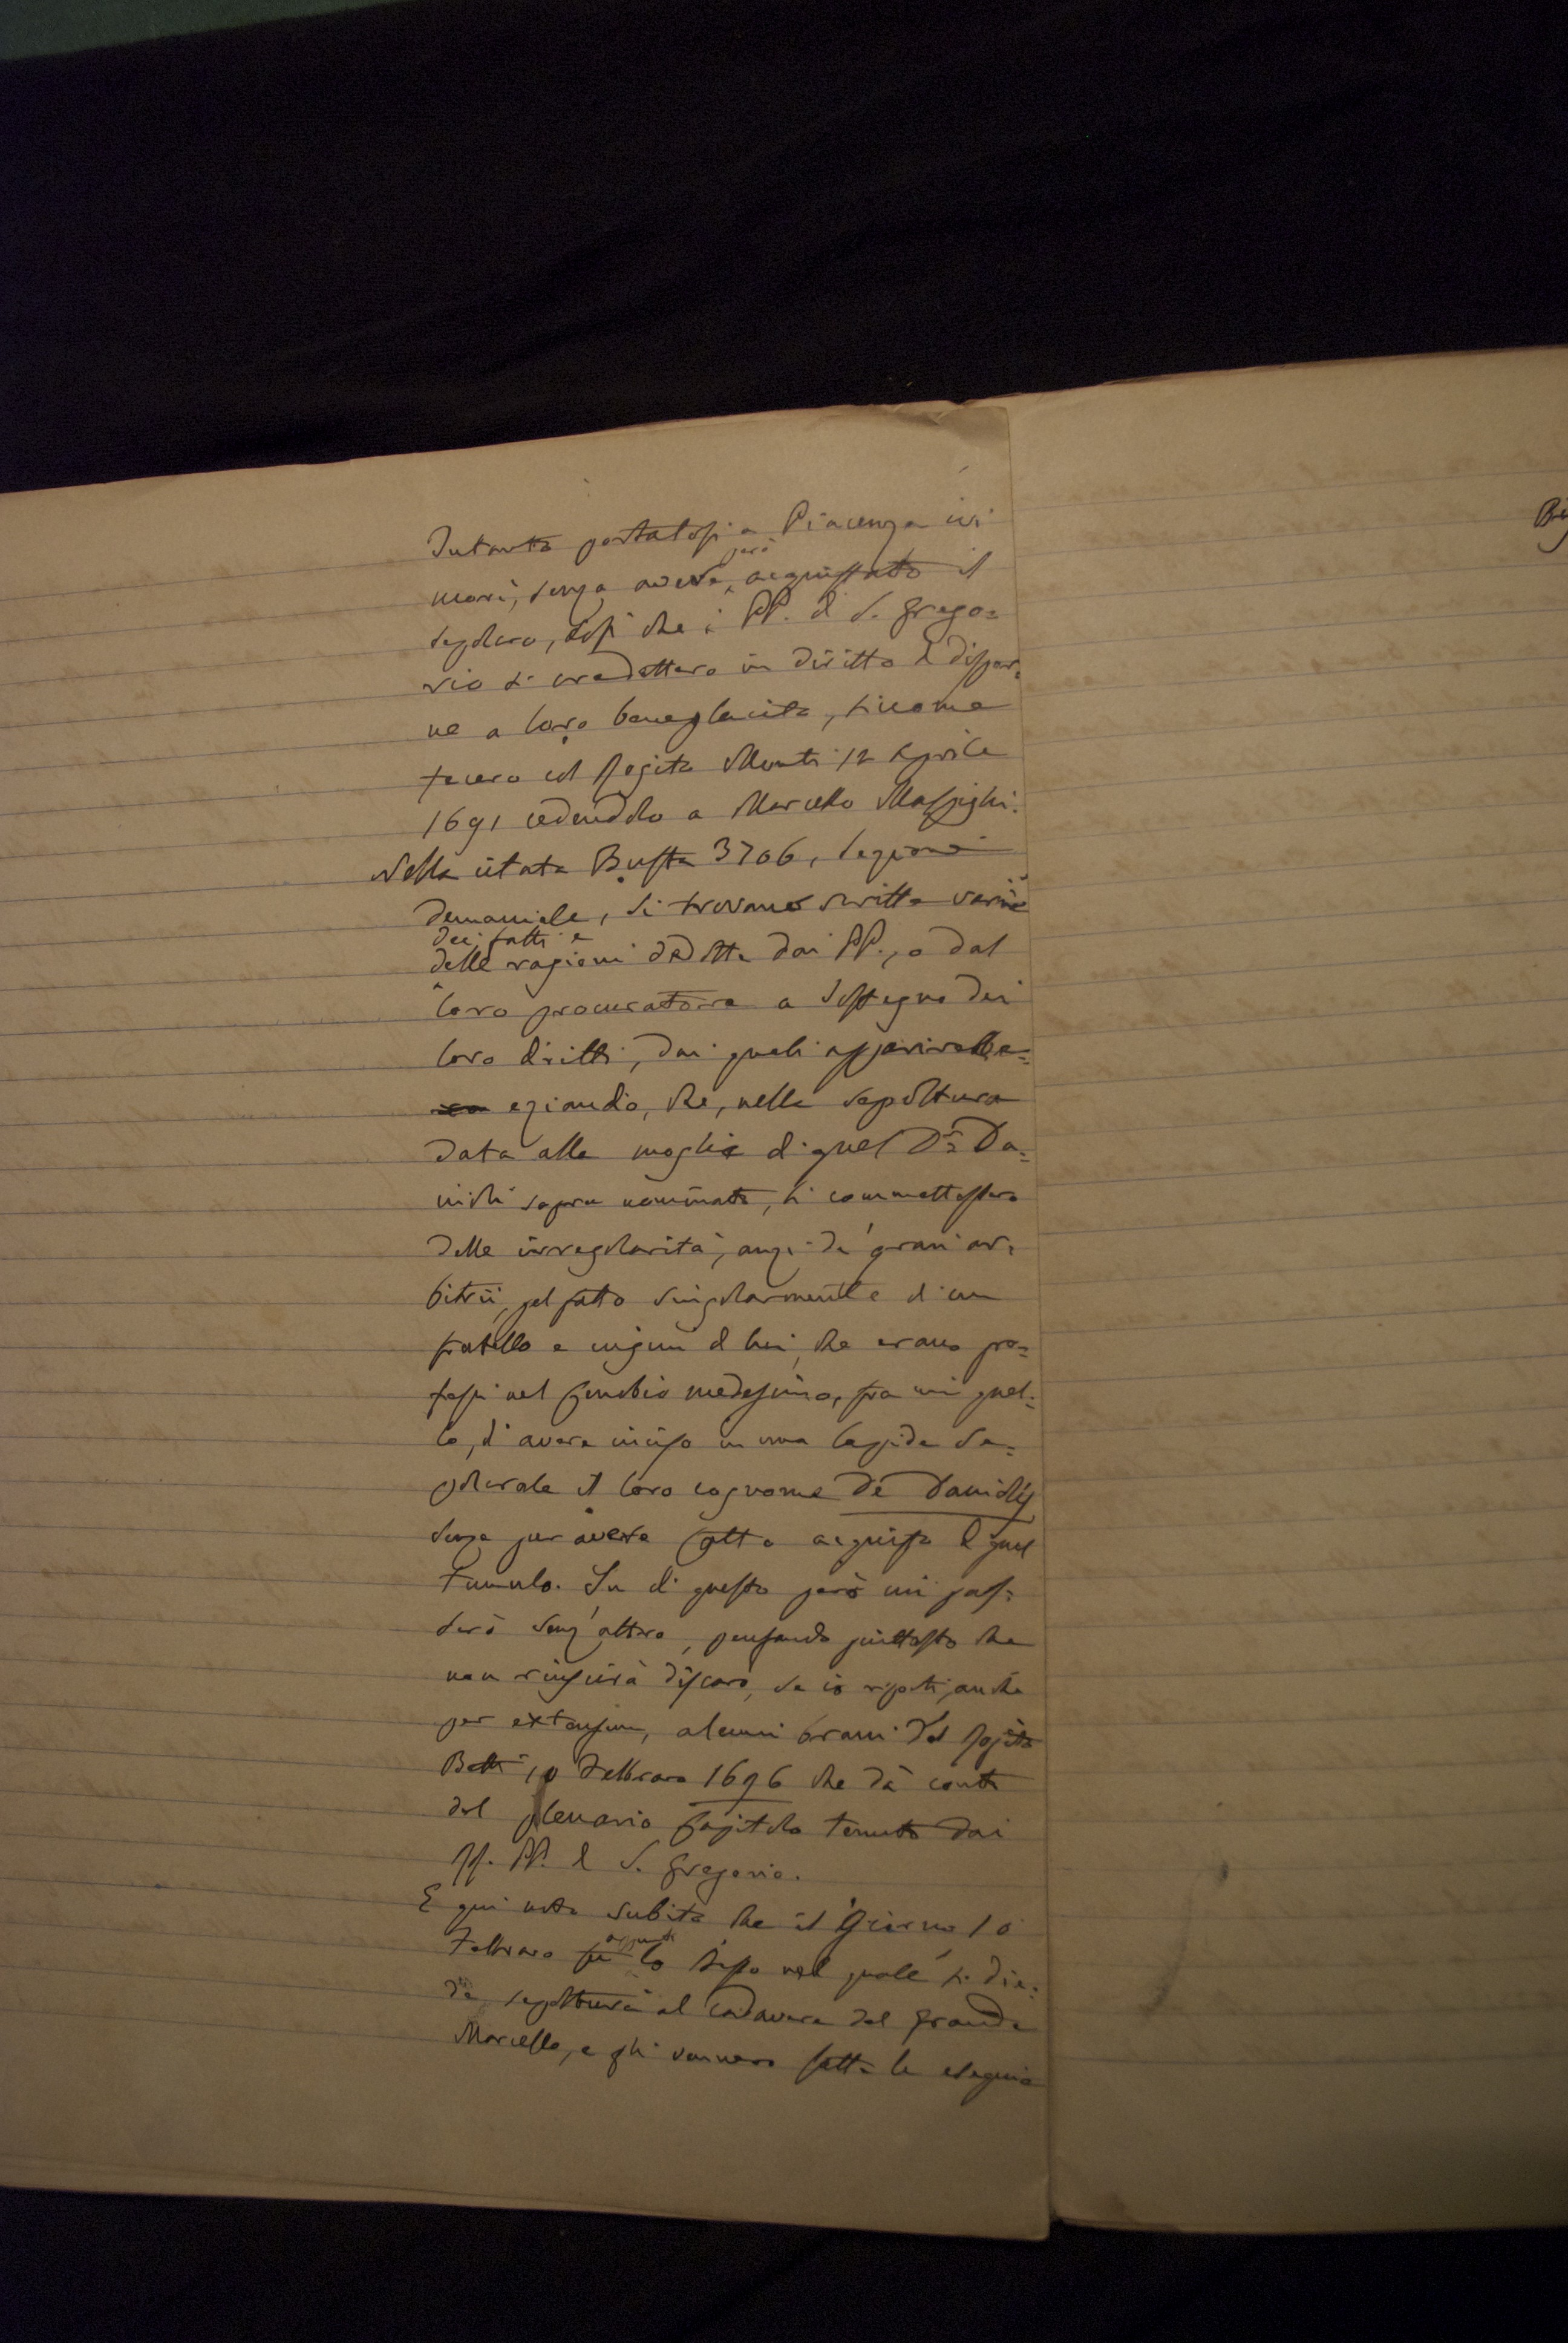 Intanto portatosi a Piacenza ivi
morì, senza avere però acquistato il
sepolcro, così che i PP. di S. Grego=
rio si credettero in diritto di dispor=
ne a loro beneplacito, siccome
fecero col Rogito Monti 12 Aprile
1691 cedendolo a Marcello Malpighi.
Nella citata Busta 3706, sezione
demaniale, si trovano scritte varie
dei fatti e
delle ragioni dedotte dai PP., o dal
loro procuratore a sostegno dei
loro diritti, dai quali apparirebbe=
eziandio, che, nella sepoltura
data alla moglie di quel Dr. Da=
nioli sopra nominato, si commettessero
delle irregolarità, anzi de' gravi ar=
bitrii, pel fatto singolarmente di un
fratello e cugini di lui, che erano pro=
fessi nel Cenobio medesimo, fra cui quel=
lo, di avere inciso in una lapide se=
polcrale il loro cognome De Daniolis
senza pur avere fatto acquisto di quel
tumulo. Su di questo però mi pas=
serò senz'altro, pensando piuttosto che
non riuscirà discaro, se io riporti, anche
per extensum, alcuni brani del Rogito
Betti 10 Febbraro 1696 che dà conto
del plenario Capitolo tenuto dai
RR. PP. di S. Gregorio.
E qui noto subito che il giorno 10
Febbraro fu appunto lo stesso nel quale si die=
de sepoltura al cadavere del grande
Marcello, e gli vennero fatte le esequie
Bi